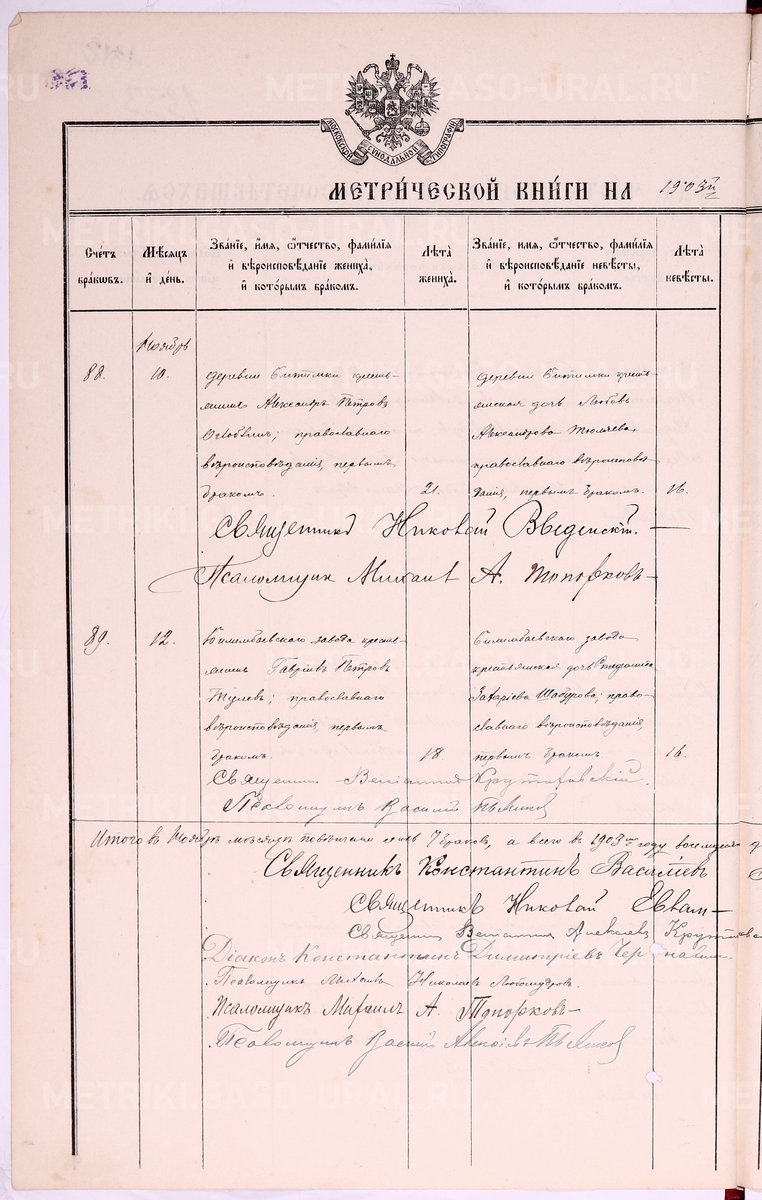 МОСКОВСКОЙ СѴНОДАЛЬНОЙ ТИПОГРАФІИ
МЕТРИ́ЧЕСКОЙ КНИ́ГИ НА 1903й
Сче́тъ бра́ковъ.
Мѣ́сяцъ и҆ де́нь.
Зва́нїе, и҆́мя, ѻ҆́тчество, фами́лїя и҆ вѣроисповѣ́данїе жениха̀, и҆ кото́рымъ бра́комъ.
Лѣта̀ жениха̀.
Зва́нїе, и҆́мя, ѻ҆́тчество, фами́лїя и҆ вѣроисповѣ́данїе невѣ́сты, и҆ кото́рымъ бра́комъ.
Лѣта̀ невѣ́сты.
Ноябрь
88.
10.
деревни Битимки кресть-
янинъ Александръ Петровъ
православнаго
вѣроисповѣданія, первымъ
бракомъ.
21.
деревни Битимки кресть-
янская дочь Любовь
Александрова Тюляева,
православнаго вѣроисповѣ-
данія, первымъ бракомъ.
16.
Священникъ Николай Введенскій.
Псаломщик Михаил А. Топорковъ
89.
12.
Билимбаевскаго завода кресть-
янинъ Гавріилъ Петровъ
православнаго
вѣроисповѣданія первымъ
бракомъ.
18
Билимбаевскаго завода
крестьянская дочь Стефанида
Захаріева Шабурова; право-
славнаго вѣроисповѣданія,
первымъ бракомъ
16.
Священник Веніамин Крутиховскій.
Псаломщикъ Василій
Итого въ Ноябрѣ мѣсяцѣ повѣнчано семь 7 браковъ, а всего въ 1903мъ году восемьдеся
Священникъ Константинъ Василіевъ
Священникъ Николай Евлам-
Священник Веніамин Алексѣевъ
Діаконъ Константинъ Димитріевъ Чернавин.
Псаломщикъ Николаев Любомудров.
Псаломщикъ Михаилъ А. Топорковъ
Псаломщикъ Василій
METRIKI.GASO-URAL.RU